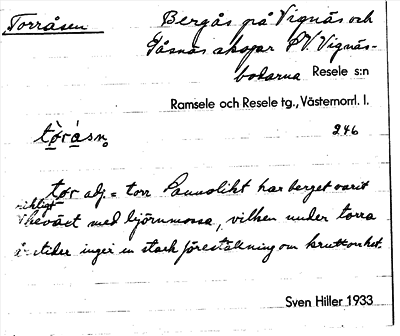 Torråsen
Bergås på Vignäs och
Gåsnäs skogar SV. Vignäs-
bodarna Resele s:n
Ramsele och Resele tg., Västernorrl. l.
246
tòrásn.
tor adj. = torr Sannolikt har berget varit
riktigt
beväxt med björnmossa, vilken under torra
årstider inger en stark föreställning om
Sven Hiller 1933